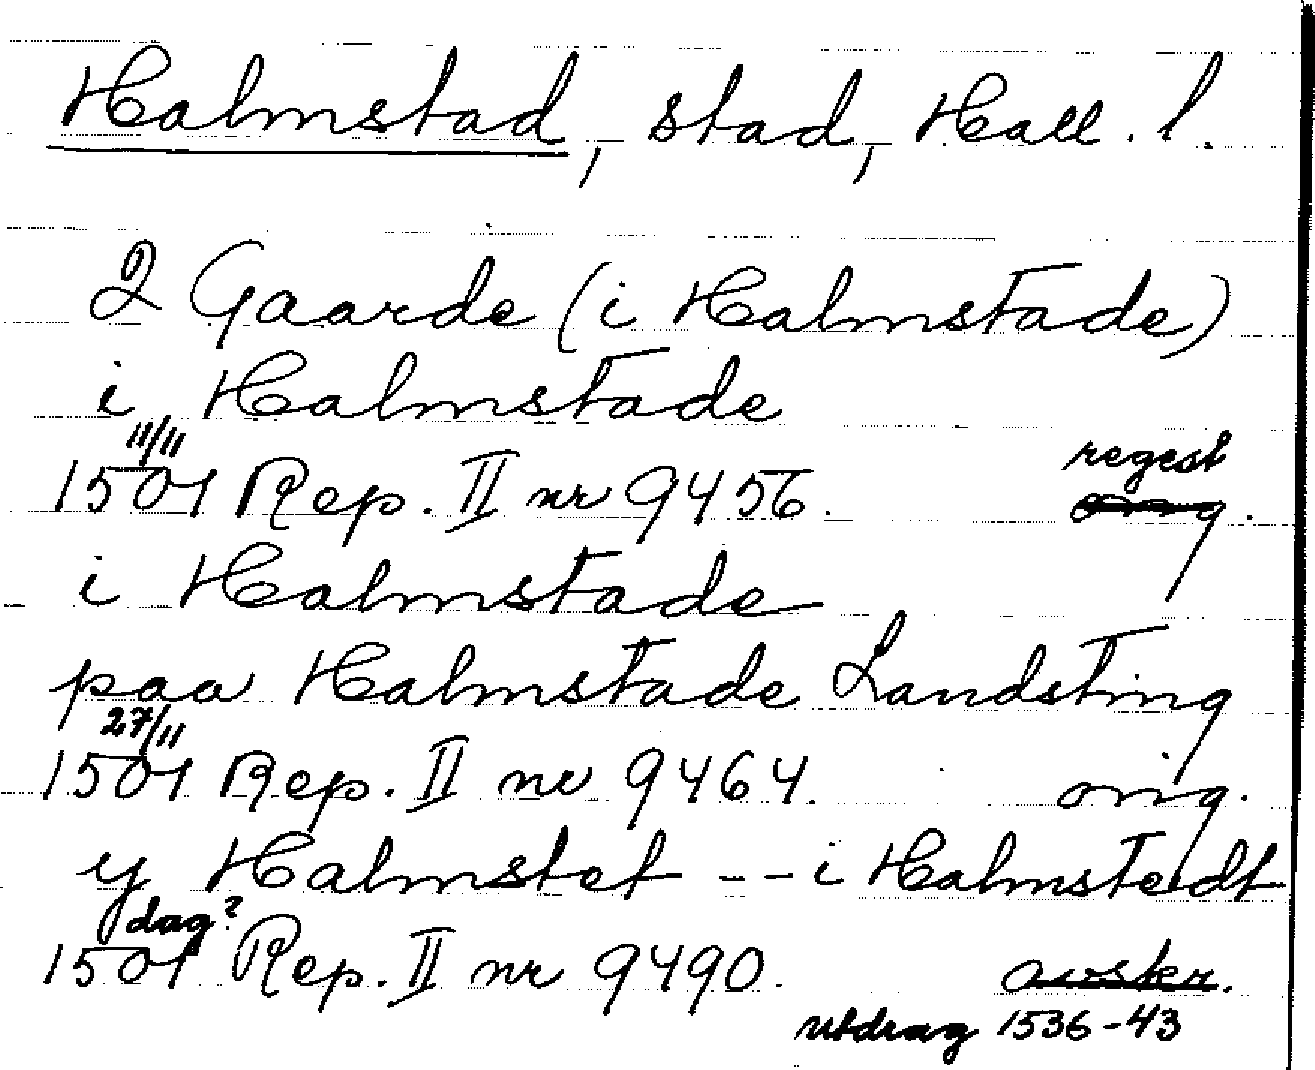 Halmstad, stad, Hall. l.
2 Gaarde (i Halmstade)
i Halmstade
11/11 regest
1501 Rep. II nr 9456. orig.
i Halmstade
paa Halmstade Landsting
27/11
1501 Rep. II nr 9464. orig.
y Halmstet -- i Halmstedt
dag?
1501 Rep. II nr 9490. avskr.
utdrag 1536-43